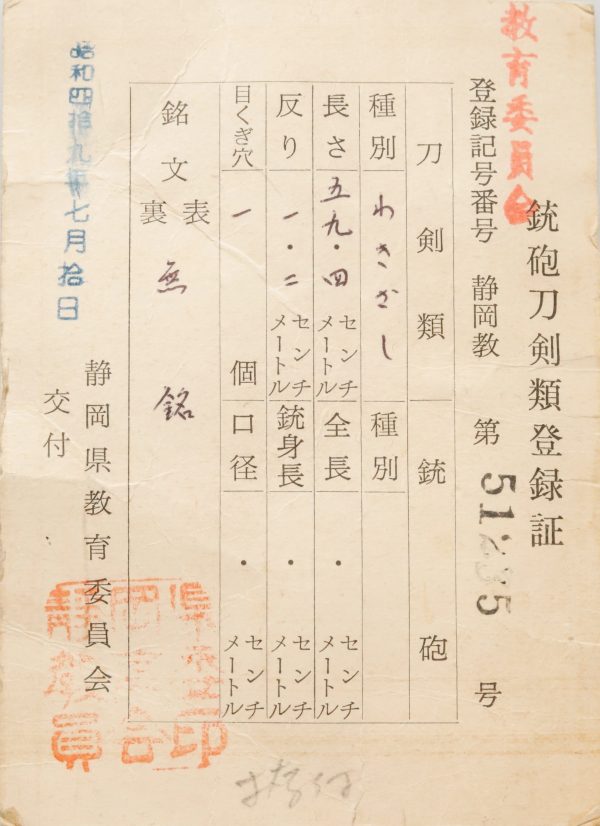 教育委員会
銃砲刀剣類登録証
登録記号番号 静岡教 第 51235 号
刀剣類 銃砲
種別 わきざし 種別
長さ 五九・四 センチメートル 全長 ・ センチメートル
反り 一・二 センチメートル 銃身長 ・ センチメートル
目くぎ穴 一 個 口径 ・ センチメートル
銘文 表 無銘
裏
昭和四拾九年七月拾日
静岡県教育委員会
交付